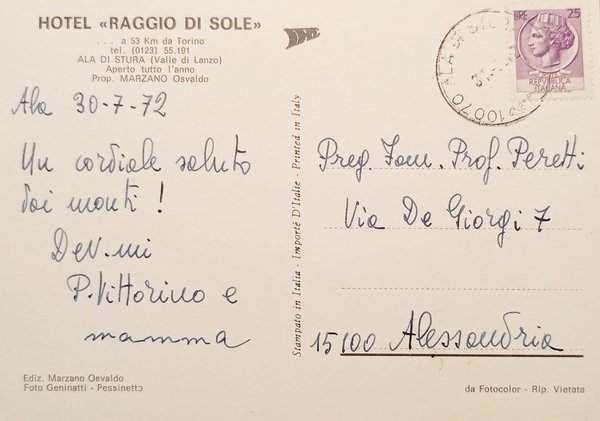 HOTEL «RAGGIO DI SOLE»
. . . a 53 Km da Torino
tel. (0123) 55.191
ALA DI STURA (Valle di Lanzo)
Aperto tutto l'anno
Prop. MARZANO Osvaldo
Ala 30-7-72
Un cordiale saluto
dai monti !
Dev.mi
P. Vittorino e
mamma
Ediz. Marzano Osvaldo
Foto Geninatti - Pessinetto
Stampato in Italia - Importé D'Italie - Printed in Italy
10070 ALA DI
LIRE 25
REPVBBLICA
ITALIANA
Preg. Fam. Prof. Peretti
Via De Giorgi 7
15100 Alessandria
da Fotocolor - Rip. Vietata